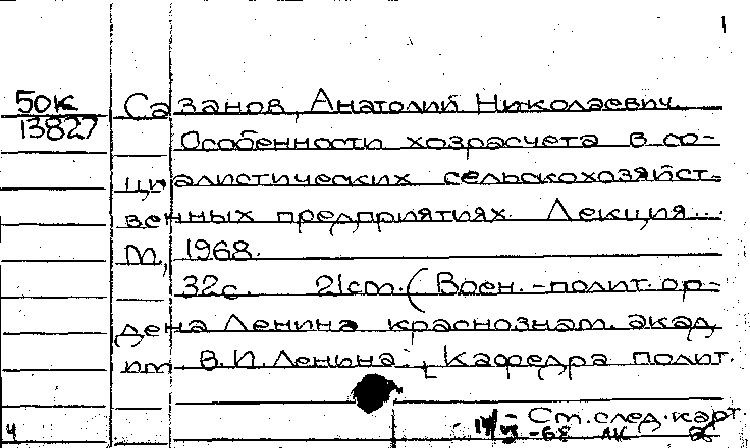 1
50к
13827
Сазанов, Анатолий Николаевич.
Особенности хозрасчета в со-
циалистических сельскохозяйст-
венных предприятиях. Лекция...
М., 1968.
32с. 21см. (Воен.-полит. ор-
дена Ленина краснознам. акад.
им. В.И. Ленина. Кафедра полит.
- См. след. карт.
-68
4